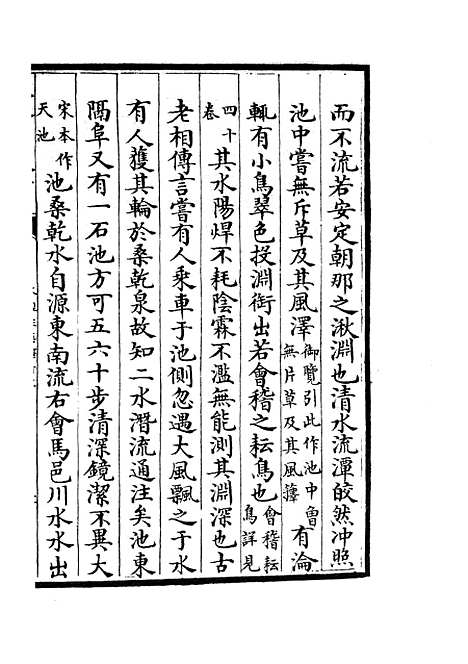 而不流若安定朝那之湫淵也清水流潭皎然冲照
池中嘗無斥草及其風澤御覽引此作池中曾無片草及其風籜有淪
輒有小鳥翠色投淵銜出若會稽之耘鳥也會稽耘鳥詳見
四十卷其水陽熯不耗陰霖不濫無能測其淵深也古
老相傳言嘗有人乘車于池側忽遇大風飄之于水
有人獲其輪於桑乾泉故知二水潛流通注矣池東
隔阜又有一石池方可五六十步清深鏡潔不異大
宋本作天池池桑乾水自源東南流右會馬邑川水水出